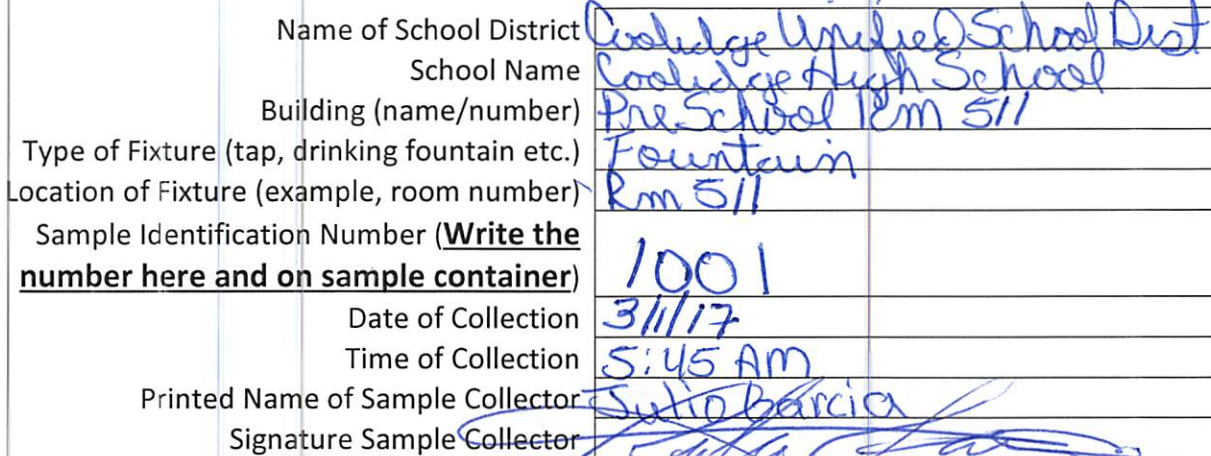 Name of School District Coolidge Unified School Dist
School Name Coolidge High School
Building (name/number) PreSchool Rm 511
Type of Fixture (tap, drinking fountain etc.) Fountain
Location of Fixture (example, room number) Rm 511
Sample Identification Number (Write the
number here and on sample container) 1001
Date of Collection 3/1/17
Time of Collection 5:45 AM
Printed Name of Sample Collector Julio Garcia
Signature Sample Collector